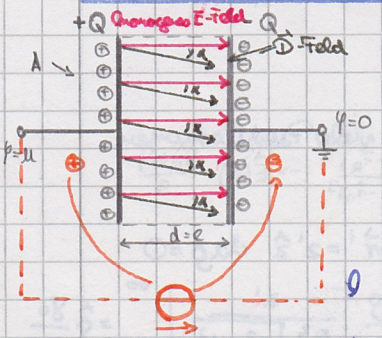 +Q Homogenes E-Feld Q
A
D-Feld
φ=u
φ=0
d=l